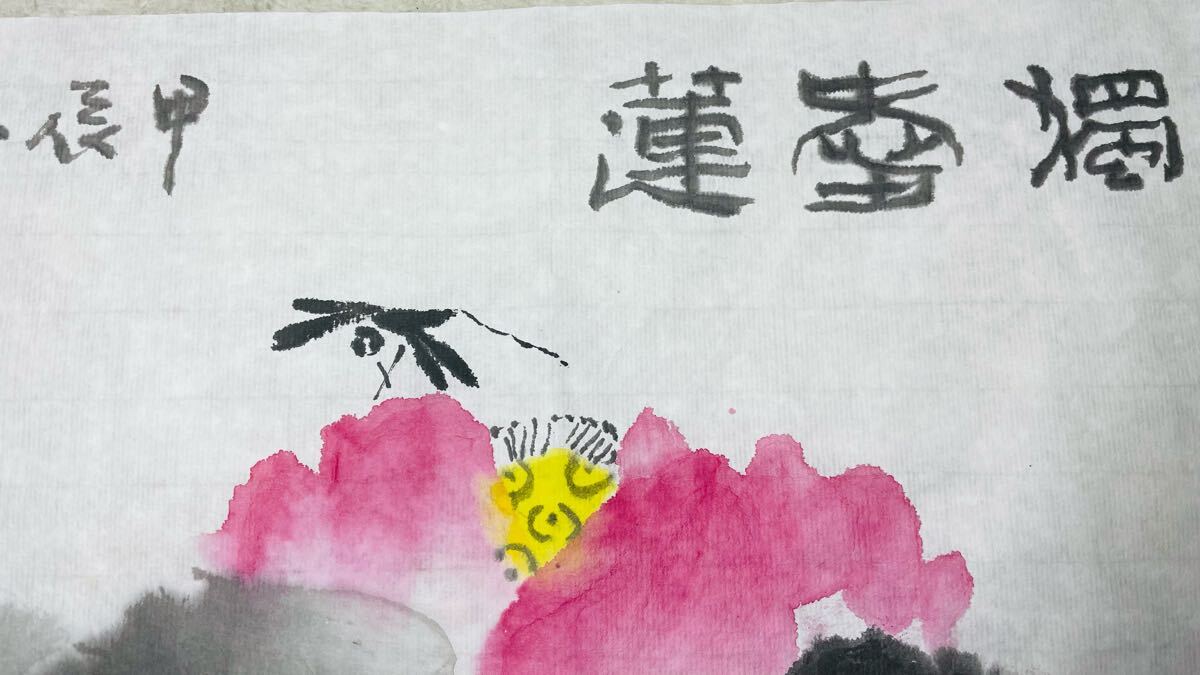 獨蓮 甲辰